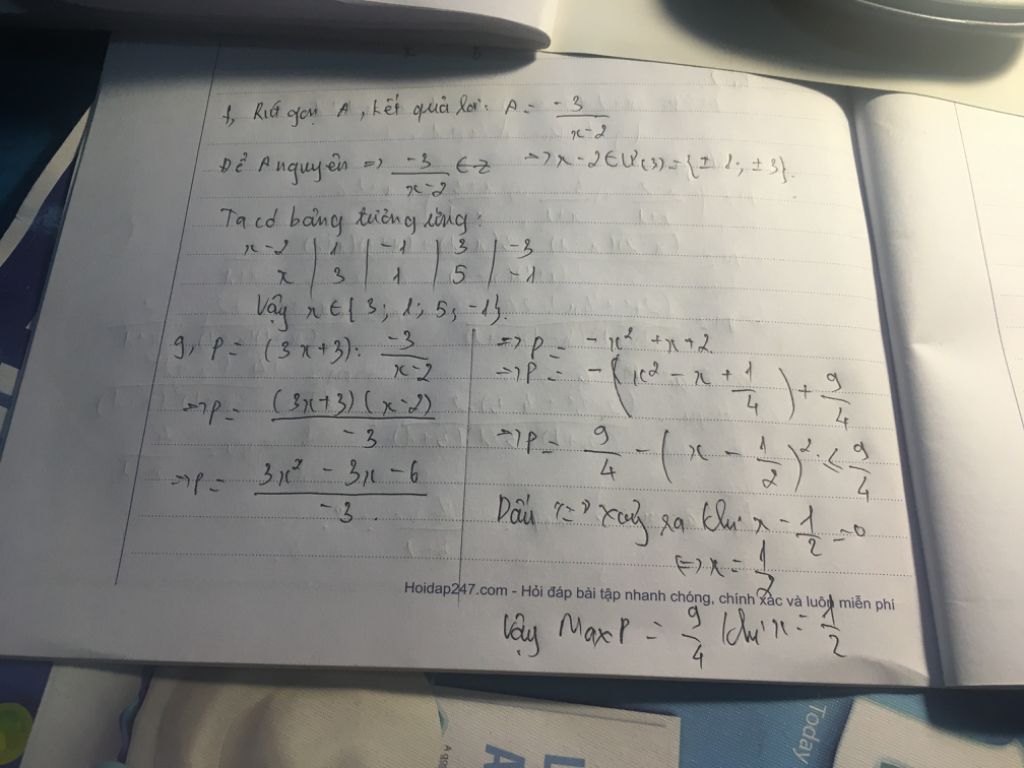 f, Rút gọn A, kết quả là: A = -3/(x-2)
Để A nguyên => -3/(x-2) ∈ Z => x-2 ∈ Ư(3) = {±1; ±3}.
Ta có bảng tương ứng:
x-2 | 1 | -1 | 3 | -3
x | 3 | 1 | 5 | -1
Vậy x ∈ {3; 1; 5; -1}.
g, P = (3x+3): -3/(x-2)
=> P = (3x+3)(x-2)/-3
=> P = (3x² - 3x - 6)/-3.
=> P = -x² + x + 2
=> P = -(x² - x + 1/4) + 9/4
=> P = 9/4 - (x - 1/2)² ≤ 9/4
Dấu "=" xảy ra khi x - 1/2 = 0
<=> x = 1/2
Hoidap247.com - Hỏi đáp bài tập nhanh chóng, chính xác và luôn miễn phí
Vậy Max P = 9/4 khi x = 1/2
Today